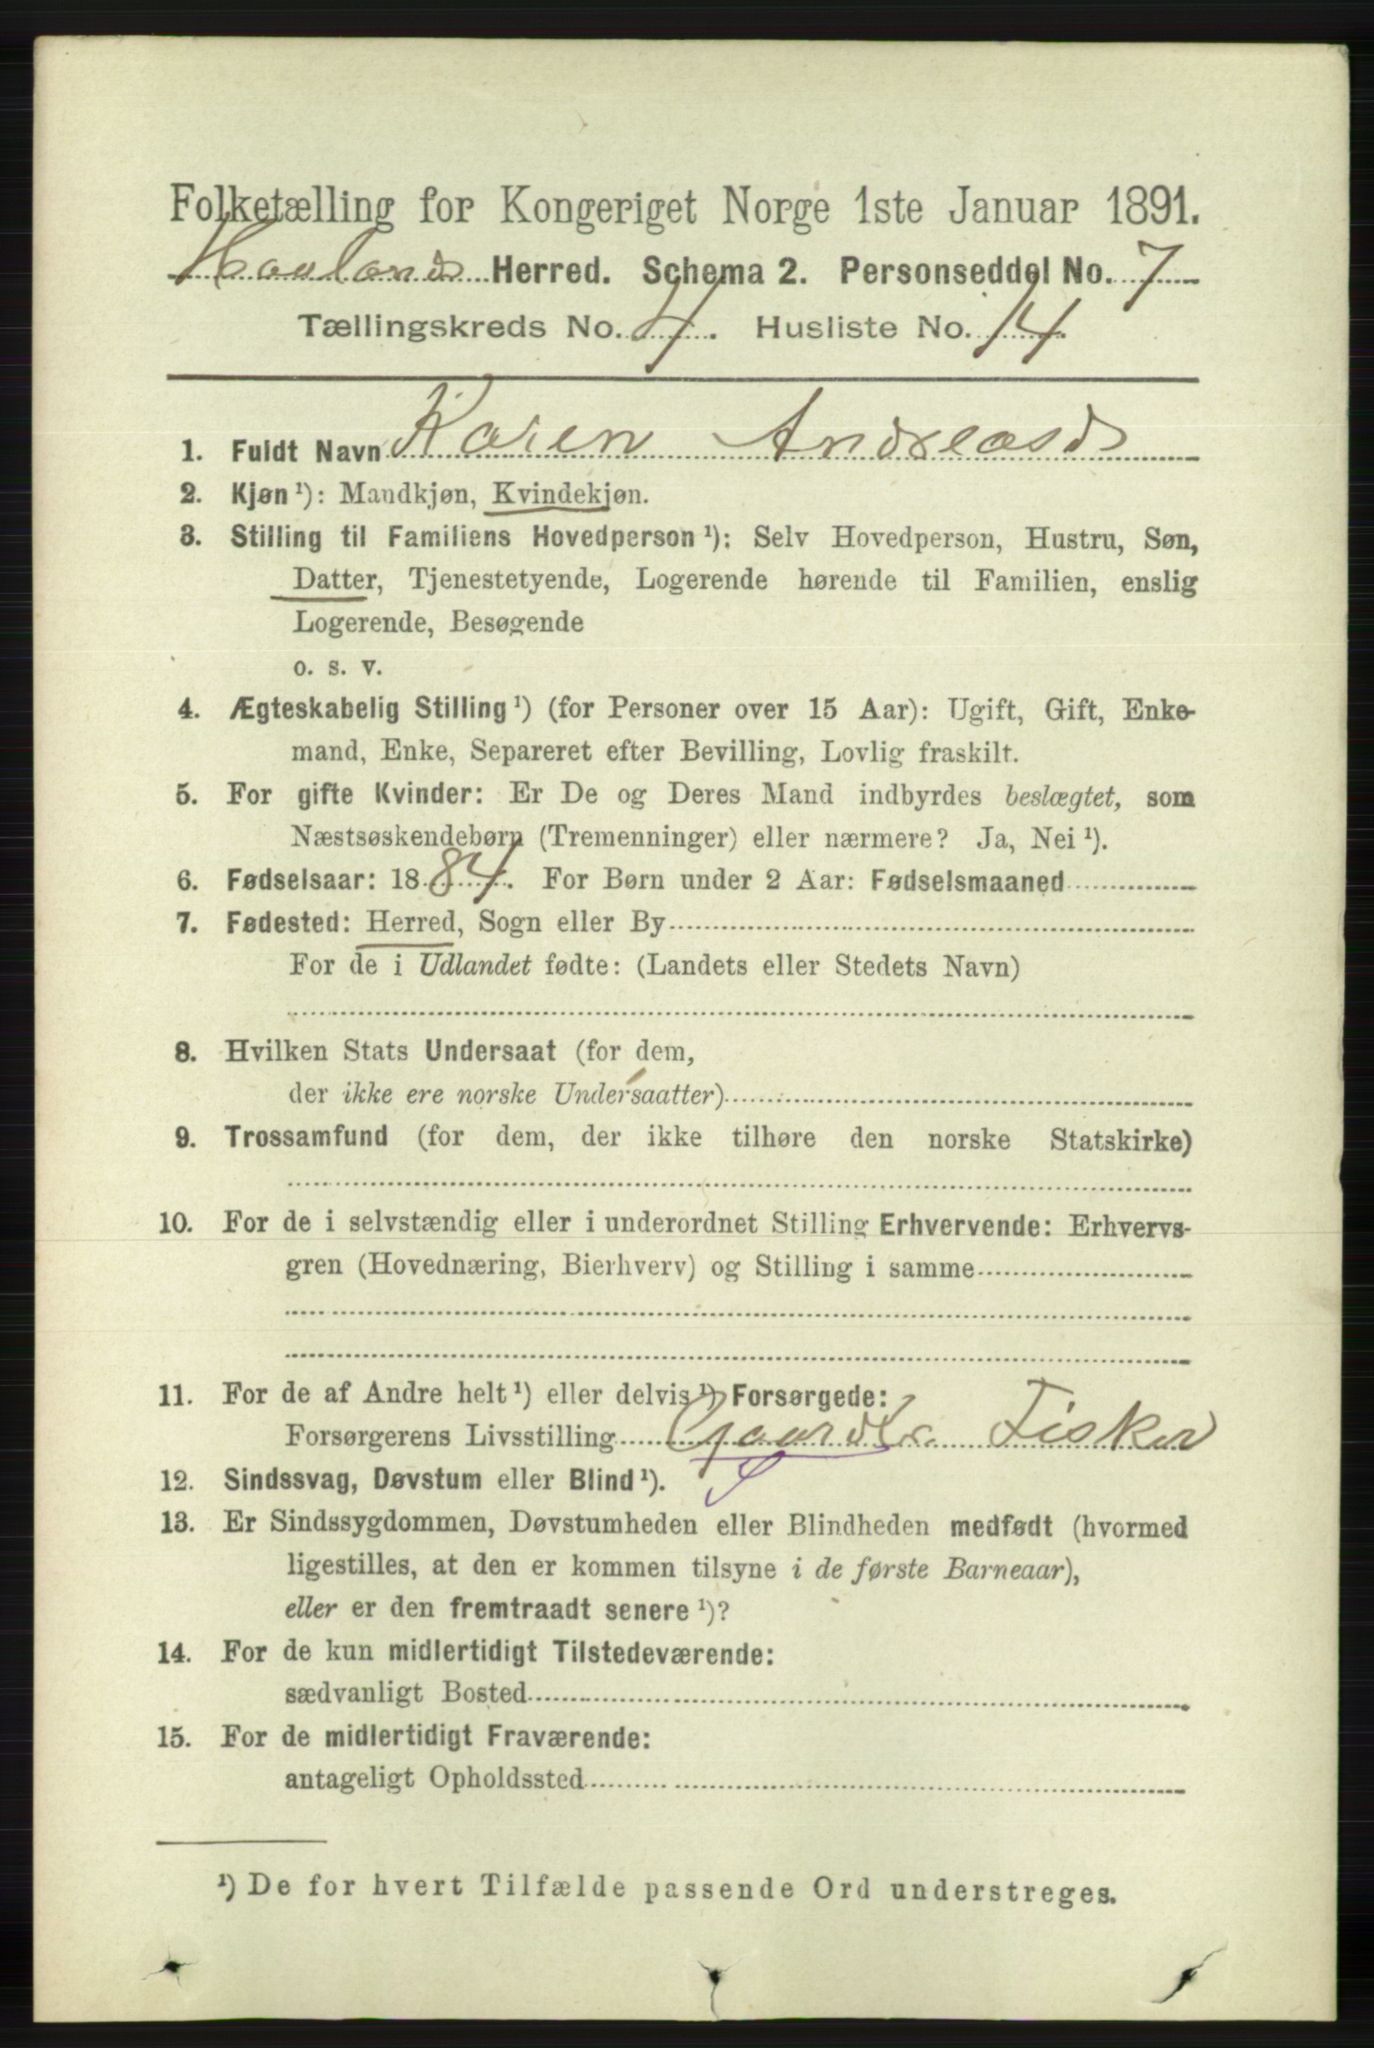 Folketælling for Kongeriget Norge 1ste Januar 1891.
Haalands Herred. Schema 2. Personseddel No. 7
Tællingskreds No. 4. Husliste No. 14.
1. Fuldt Navn Karen Andreasd
2. Kjøn ¹): Mandkjøn, Kvindekjøn.
3. Stilling til Familiens Hovedperson ¹): Selv Hovedperson, Hustru, Søn,
Datter, Tjenestetyende, Logerende hørende til Familien, enslig
Logerende, Besøgende
o. s. v.
4. Ægteskabelig Stilling ¹) (for Personer over 15 Aar): Ugift, Gift, Enke-
mand, Enke, Separeret efter Bevilling, Lovlig fraskilt.
5. For gifte Kvinder: Er De og Deres Mand indbyrdes beslægtet, som
Næstsøskendebørn (Tremenninger) eller nærmere? Ja, Nei ¹).
6. Fødselsaar: 1884. For Børn under 2 Aar: Fødselsmaaned
7. Fødested: Herred, Sogn eller By
For de i Udlandet fødte: (Landets eller Stedets Navn)
8. Hvilken Stats Undersaat (for dem,
der ikke ere norske Undersaatter)
9. Trossamfund (for dem, der ikke tilhøre den norske Statskirke)
10. For de i selvstændig eller i underordnet Stilling Erhvervende: Erhvervs-
gren (Hovednæring, Bierhverv) og Stilling i samme
11. For de af Andre helt ¹) eller delvis ¹) Forsørgede:
Forsørgerens Livsstilling Gaardbr. Fisker
12. Sindssvag, Døvstum eller Blind ¹).
13. Er Sindssygdommen, Døvstumheden eller Blindheden medfødt (hvormed
ligestilles, at den er kommen tilsyne i de første Barneaar),
eller er den fremtraadt senere ¹)?
14. For de kun midlertidigt Tilstedeværende:
sædvanligt Bosted
15. For de midlertidigt Fraværende:
antageligt Opholdssted
¹) De for hvert Tilfælde passende Ord understreges.